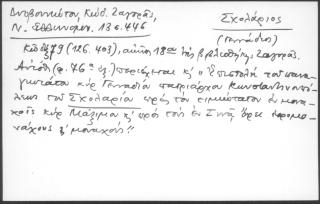 Δυοβουνιώτου, Κώδ. Ζαγορᾶς,
Ν. Ἑλληνομν. 13 σ. 446
Σχολάριος
(Γεννάδιος)
Κώδιξ 79 (126. 403), αἰῶνος 18ου τῆς βιβλιοθήκης Ζαγορᾶς.
(φ. 76α ἑ.) περιέχεται κ' ἡ "Ἐπιστολὴ τοῦ πανα-
γιωτάτου κὺρ Γενναδίου πατριάρχου Κωνσταντινουπό-
λεως τοῦ Σχολαρίου πρὸς τὸν τιμιώτατον ἐν μονα-
χοῖς κὺρ Μάξιμον κ' πρὸς τοὺς ἐν Σινᾷ ὄρει ἱερομο-
νάχους κ' μοναχούς".